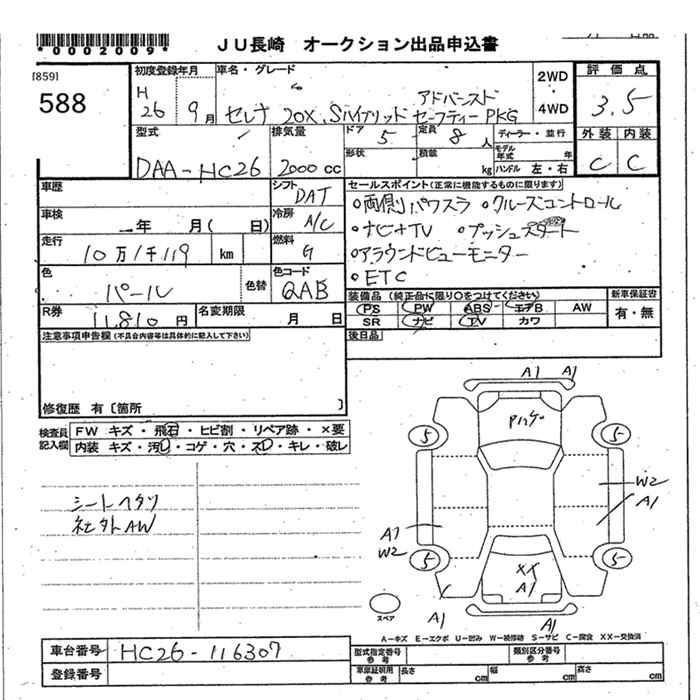 *0002009*
JU長崎 オークション出品申込書
[859]
588
初度登録年月 車名・グレード 2WD 評価点
H 26 9月 セレナ 20X、Sハイブリッド アドバンスド セーフティー PKG 4WD 3.5
型式 排気量 ドア 5 定員 8人 ディーラー・並行 外装 内装
DAA-HC26 2000cc 形状 積載 kg モデル年式 年 ハンドル 左・右 C C
車歴 シフト DAT セールスポイント(正常に機能するものに限ります)
車検 年 月( 日) 冷房 A/C ○両側パワスラ ○クルーズコントロール
走行 10万1千119 km 燃料 G ○ナビ+TV ○プッシュスタート
○アラウンドビューモニター
色 パール 色替 色コード QAB ○ETC
R券 11,810円 名変期限 月 日 装備品(純正品に限り○をつけてください) 新車保証書
PS PW ABS エアB AW 有・無
SR ナビ TV カワ
注意事項申告欄(不具合内容等は具体的に記入して下さい) 後日品
修復歴 有〔箇所 〕
検査員記入欄 FW キズ・飛石・ヒビ割・リペア跡・×要
内装 キズ・汚れ・コゲ・穴・スレ・キレ・破レ
シートヘタリ
社外AW
A1 A1
5 5
W2
A1
A1
W2
5 5
XX
A1
スペア
A1 A1
A-キズ E-エクボ U-凹み W-補修跡 S-サビ C-腐食 XX-交換済
車台番号 HC26-116307 型式指定番号 参考 類別区分番号 参考
登録番号 車庫証明用 参考 長さ cm 幅 cm 高さ cm